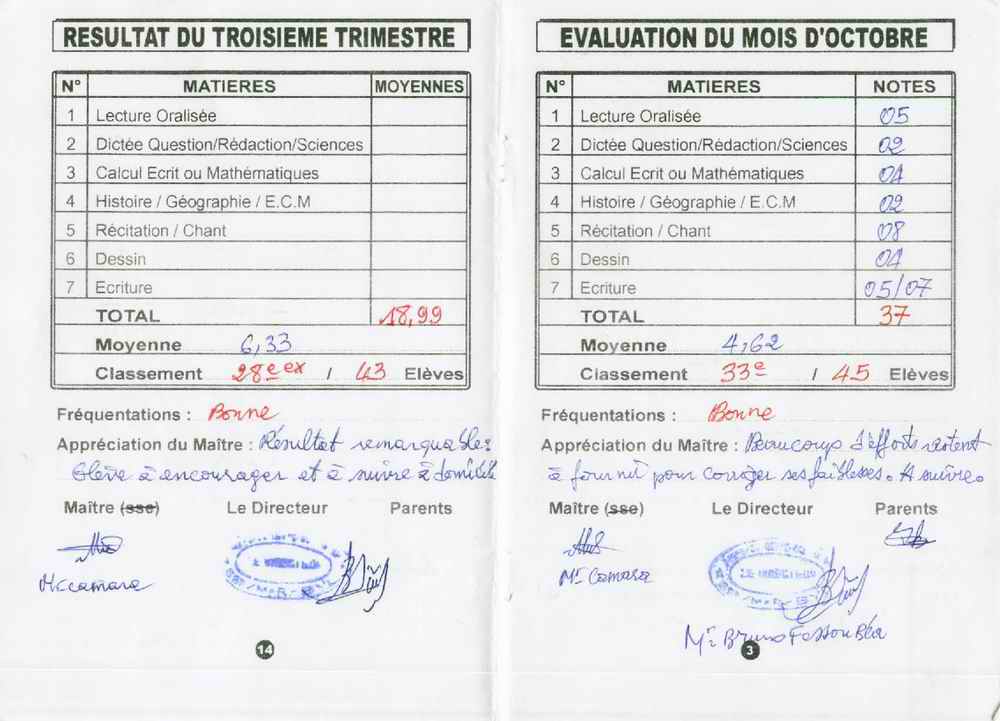 RESULTAT DU TROISIEME TRIMESTRE
N° MATIERES MOYENNES
1 Lecture Oralisée
2 Dictée Question/Rédaction/Sciences
3 Calcul Ecrit ou Mathématiques
4 Histoire / Géographie / E.C.M
5 Récitation / Chant
6 Dessin
7 Ecriture
TOTAL 18,99
Moyenne 6,33
Classement 28e ex / 43 Elèves
Fréquentations : Bonne
Appréciation du Maître : Résultat remarquable.
Elève à encourager et à suivre à domicile
Maître (sse) Le Directeur Parents
Mr camara
14
EVALUATION DU MOIS D'OCTOBRE
N° MATIERES NOTES
1 Lecture Oralisée 05
2 Dictée Question/Rédaction/Sciences 02
3 Calcul Ecrit ou Mathématiques 04
4 Histoire / Géographie / E.C.M 02
5 Récitation / Chant 08
6 Dessin 04
7 Ecriture 05/07
TOTAL 37
Moyenne 4,62
Classement 33e / 45 Elèves
Fréquentations : Bonne
Appréciation du Maître : Beaucoup d'efforts restent
à fournir pour corriger ses faiblesses. A suivre.
Maître (sse) Le Directeur Parents
Mr Camara
Mr Bruno Fassou Béa
3